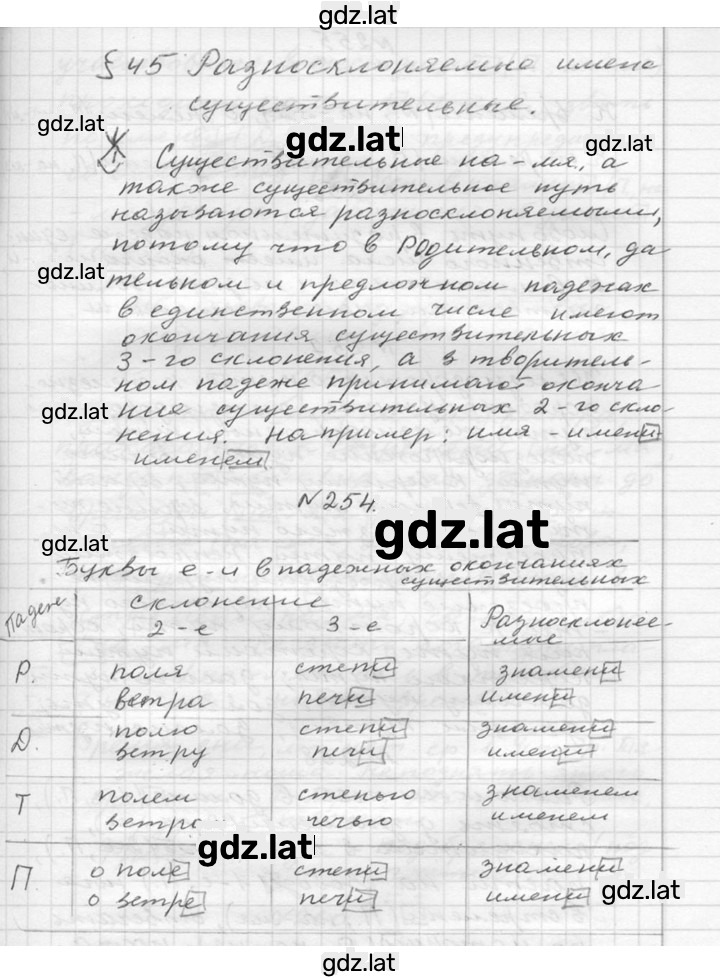 gdz.lat
§ 45 Разносклоняемые имена
существительные.
gdz.lat
gdz.lat
Существительные на -мя, а
также существительное путь
называются разносклоняемыми,
потому что в Родительном, да
gdz.lat
тельном и предложном падежах
в единственном числе имеют
окончания существительных
3-го склонения, а в творитель-
ном падеже принимают оконча-
gdz.lat
ние существительных 2-го скло-
нения. Например: имя - имени
именем
N 254.
gdz.lat
gdz.lat
Буквы е-и в падежных окончаниях
существительных
Падеж склонение
2-е 3-е Разносклоняе-
мые
Р. поля степи знамени
ветра печи имени
Д. полю степи знамени
ветру печи имени
Т полем степью знаменем
ветро печью именем
gdz.lat
П. о поле степи знамени
о ветре печи имени
gdz.lat
gdz.lat